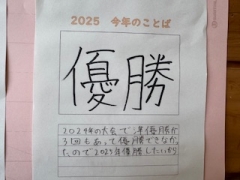 2025 今年のことば
優勝
2024年の大会で準優勝が
3回もあって優勝できなかっ
たので2025年優勝したいから